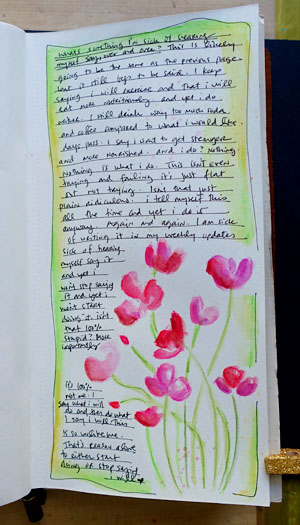 What's something I'm sick of hearing
myself say, over and over? This is likely
going to be the same as the previous page
but it still begs to be said. I keep
saying I will exercise and that I will
eat more nutritiously and yet I do
neither. I still drink way too much soda
and coffee compared to what I would like.
days pass. I say I want to get stronger
and more nourished. And I do? Nothing
Nothing is what I do. This isn't even
trying and failing it's just flat
out not trying. Isn't that just
plain ridiculous. I tell myself this
all the time and yet I do it
anyway. Again and again. I am sick
of writing it in my weekly updates
sick of hearing
myself say it
and yet I
won't stop saying
it and yet I
won't start
doing it. isn't
that 100%
stupid? More
importantly
it's 100%
not me. I
say what I will
do and then do what
I say I will. This
is so unlike me.
That's reason alone
to either start
doing or stop saying
I will